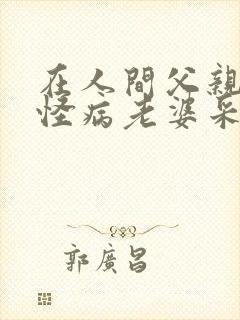 在人間父親
怪病老婆采
郭廣昌